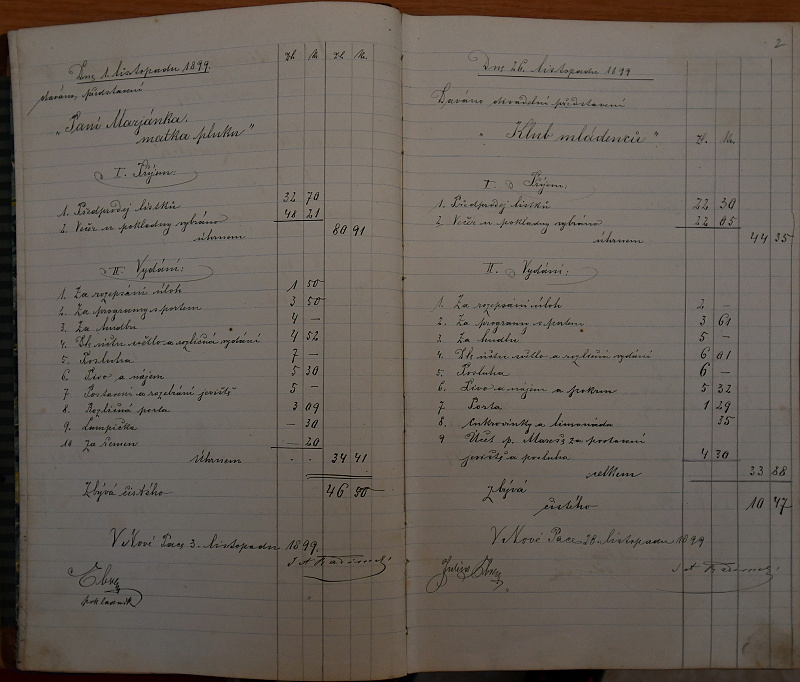 Zl. Kr. Zl. Kr.
Dne 1. listopadu 1899.
dáváno představení
„Paní Marjánka,
matka pluku"
I. Příjem:
1. Předprodej lístků 32 70
2. Večer u pokladny vybráno 48 21
úhrnem 80 91
II. Vydání:
1. Za rozepsání úloh 1 50
2. Za programy s portem 3 50
3. Za hudbu 4 —
4. světlo a rozličná vydání 4 52
5. Posluha 7 —
6. Pivo a nájem 5 30
7. Postavení a rozebrání jeviště 5 —
8. Rozličná porta 3 09
9. Lampička — 30
10. Za řemen — 20
Úhrnem 34 41
Zbývá čistého 46 50
V Nové Pace 3. listopadu 1899.
pokladník
2
Dne 26. listopadu 1899
Dáváno divadelní představení
„Klub mládenců"
Zl. Kr.
I. Příjem:
1. Předprodej lístků 22 30
2. Večer u pokladny vybráno 22 05
úhrnem 44 35
II. Vydání:
1. Za rozepsání úloh 2 —
2. Za programy s portem 3 61
3. Za hudbu 5 —
4. světlo a rozličná vydání 6 01
5. Posluha 6 —
6. Pivo a nájem a pokrm 5 32
7. Porta 1 29
8. Cukrovinky a limonáda 35
9. Účet p. Mareš za postavení
jeviště a posluha 4 30
celkem 33 88
Zbývá
čistého 10 47
V Nové Pace 28. listopadu 1899
Julius